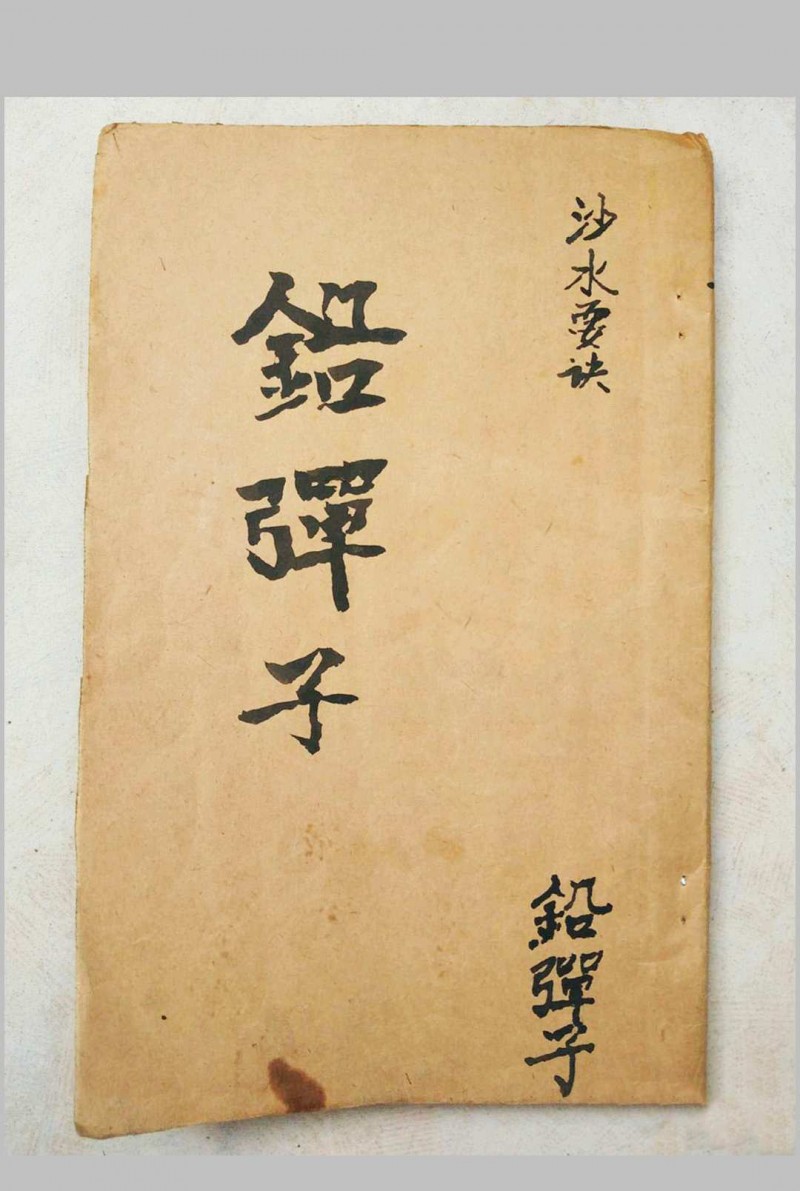 沙水要诀
鉛彈子
鉛彈子